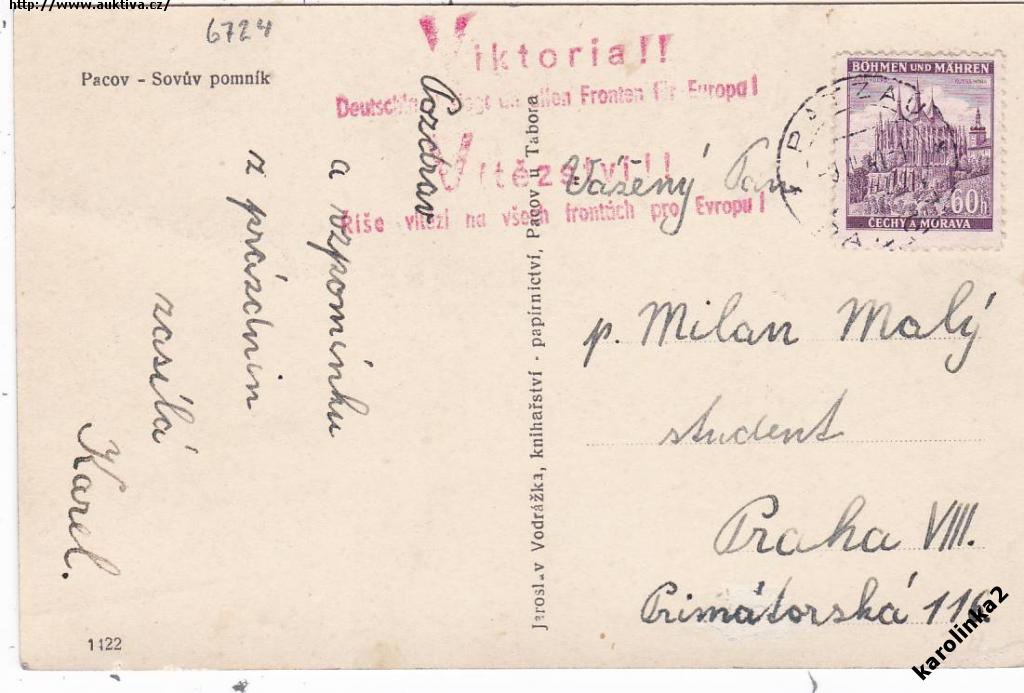 http://www.auktiva.cz/
6724
Pacov - Sovův pomník
Viktoria!!
Deutschland siegt an allen Fronten für Europa!
Vítězství!!
Říše vítězí na všech frontách pro Evropu!
BÖHMEN UND MÄHREN
60h
ČECHY A MORAVA
PATZAU
Pozdrav
a vzpomínku
z prázdnin
zasílá
Karel.
Jaroslav Vodrážka, knihařství - papírnictví, Pacov u Tabora
Vážený Pan
p. Milan Malý
student
Praha VIII.
Primátorská 116
1122
karolinka2